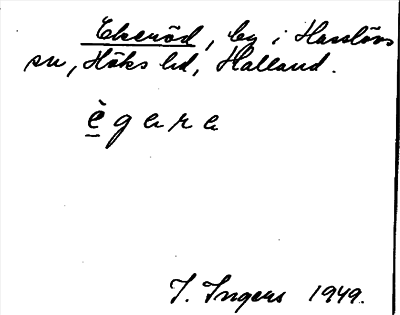 Ekeröd, by i Hasslövs
sn, Höks hd, Halland.
è g a r a
I. Ingers 1949.